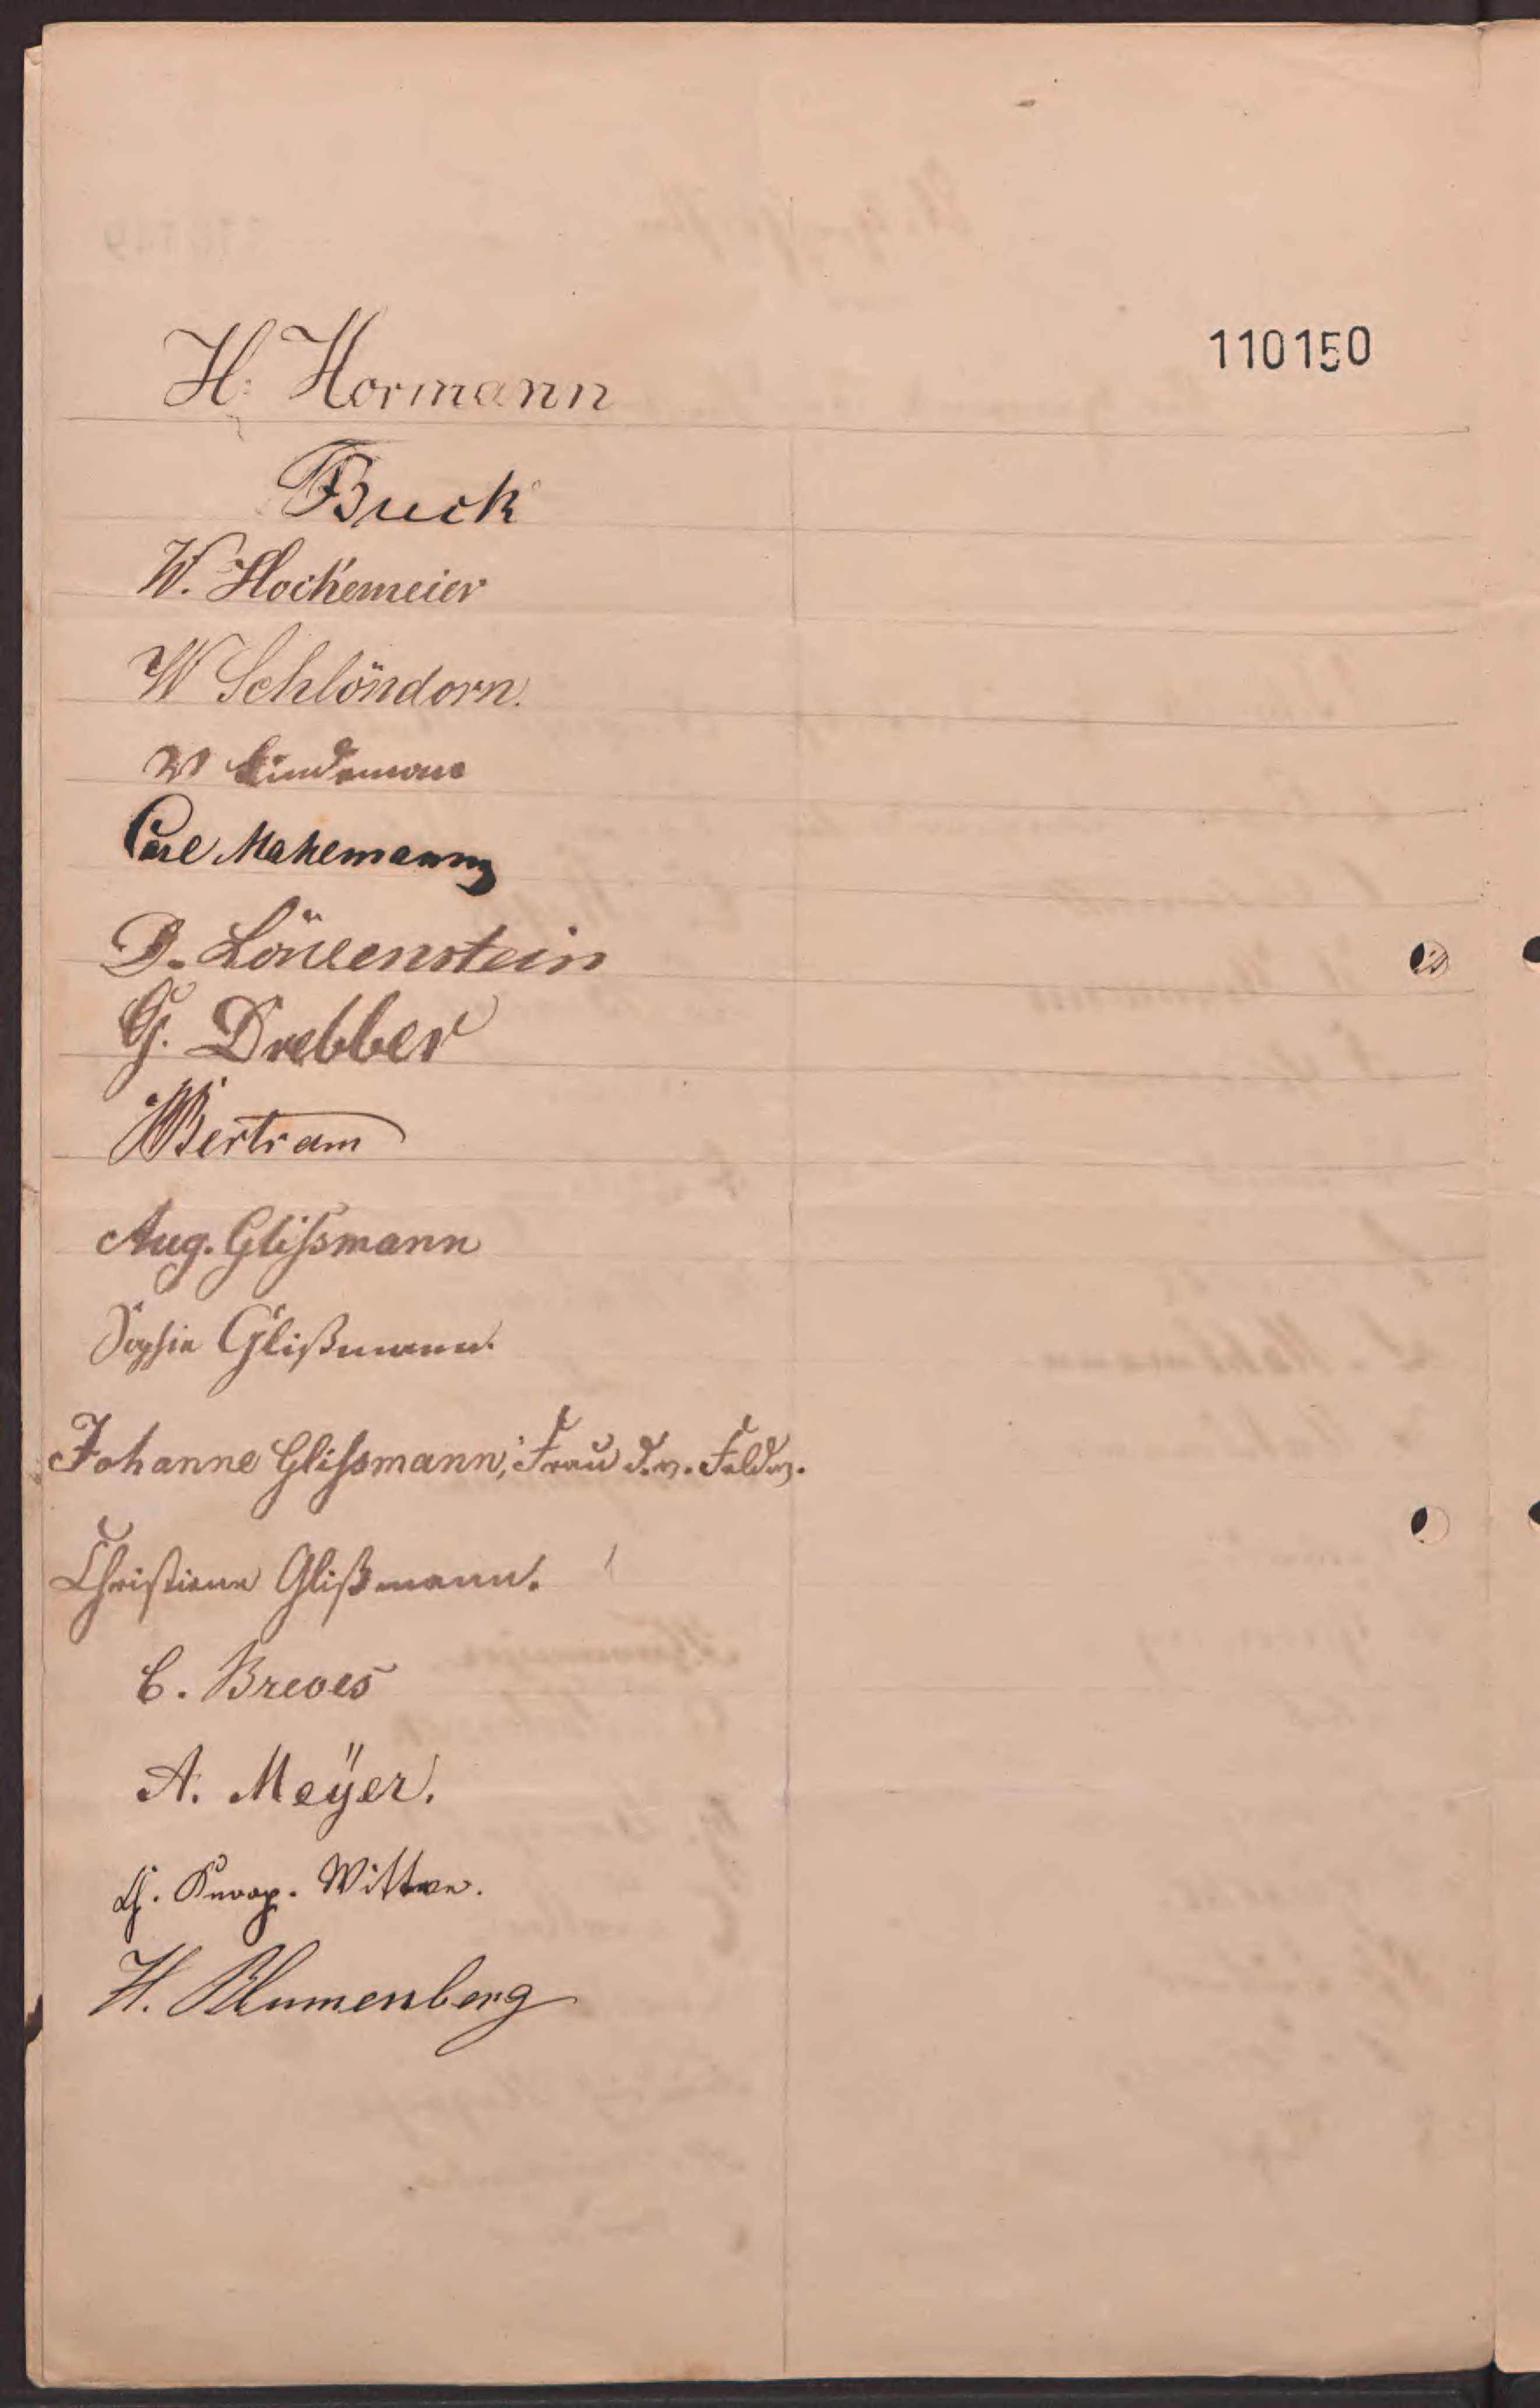 110150
H. Hormann
Buck
W. Hockemeier
W Schlöndorn.
W Lindemann
Carl Mahemann
D. Löwenstein
G. Drebber
W Bertram
Aug. Glißmann
Sophie Glißmann.
Johanne Glißmann, Frau d. v. Feldw.
Christiane Glißmann.
C. Breves
A. Meÿer.
Ch. Knoop. Wittwe.
H. Blumenberg